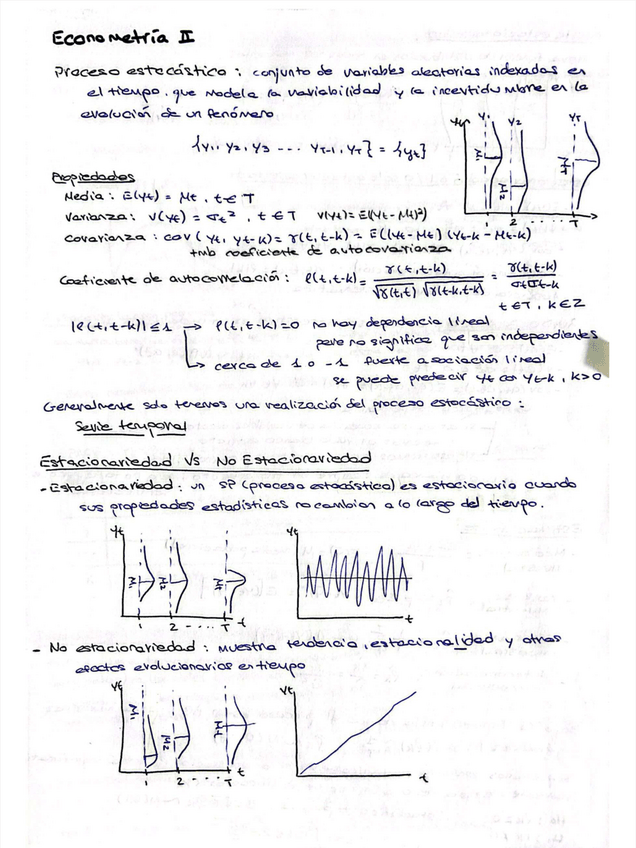 Econometría II
Proceso estocástico : conjunto de variables aleatorias indexadas en
el tiempo, que modela la variabilidad y la incertidumbre en la
evolución de un fenómeno
{y1, y2, y3 ... yT-1, yT} = {yt}
yt y1 y2 yT
μ1 μ2 μT
1 2 ..... T
Propiedades
Media : E(yt) = μt , t ∈ T
Varianza : V(yt) = σt² , t ∈ T V(yt) = E((yt - μt)²)
covarianza : cov (yt, yt-k) = γ(t, t-k) = E((yt - μt) (yt-k - μt-k)
tmb coeficiente de autocovarianza
Coeficiente de autocorrelación : ρ(t, t-k) = γ(t, t-k) / √γ(t,t) √γ(t-k, t-k) = γ(t, t-k) / σt σt-k
t ∈ T , k ∈ Z
|ρ(t, t-k)| ≤ 1 → ρ(t, t-k) = 0 no hay dependencia lineal
pero no significa que son independientes
↳ cerca de 1 o -1 fuerte asociación lineal
se puede predecir yt con yt-k , k>0
Generalmente solo tenemos una realización del proceso estocástico :
Serie temporal
Estacionariedad VS No Estacionariedad
- Estacionariedad : un SP (proceso estocástico) es estacionario cuando
sus propiedades estadísticas no cambian a lo largo del tiempo.
yt yt
μ1 μ2 μT
1 2 - ... T t t
- No estacionariedad : muestra tendencia, estacionalidad y otros
efectos evolucionarios en tiempo
yt yt
μ1 μ2 μT
1 2 - ... T t t